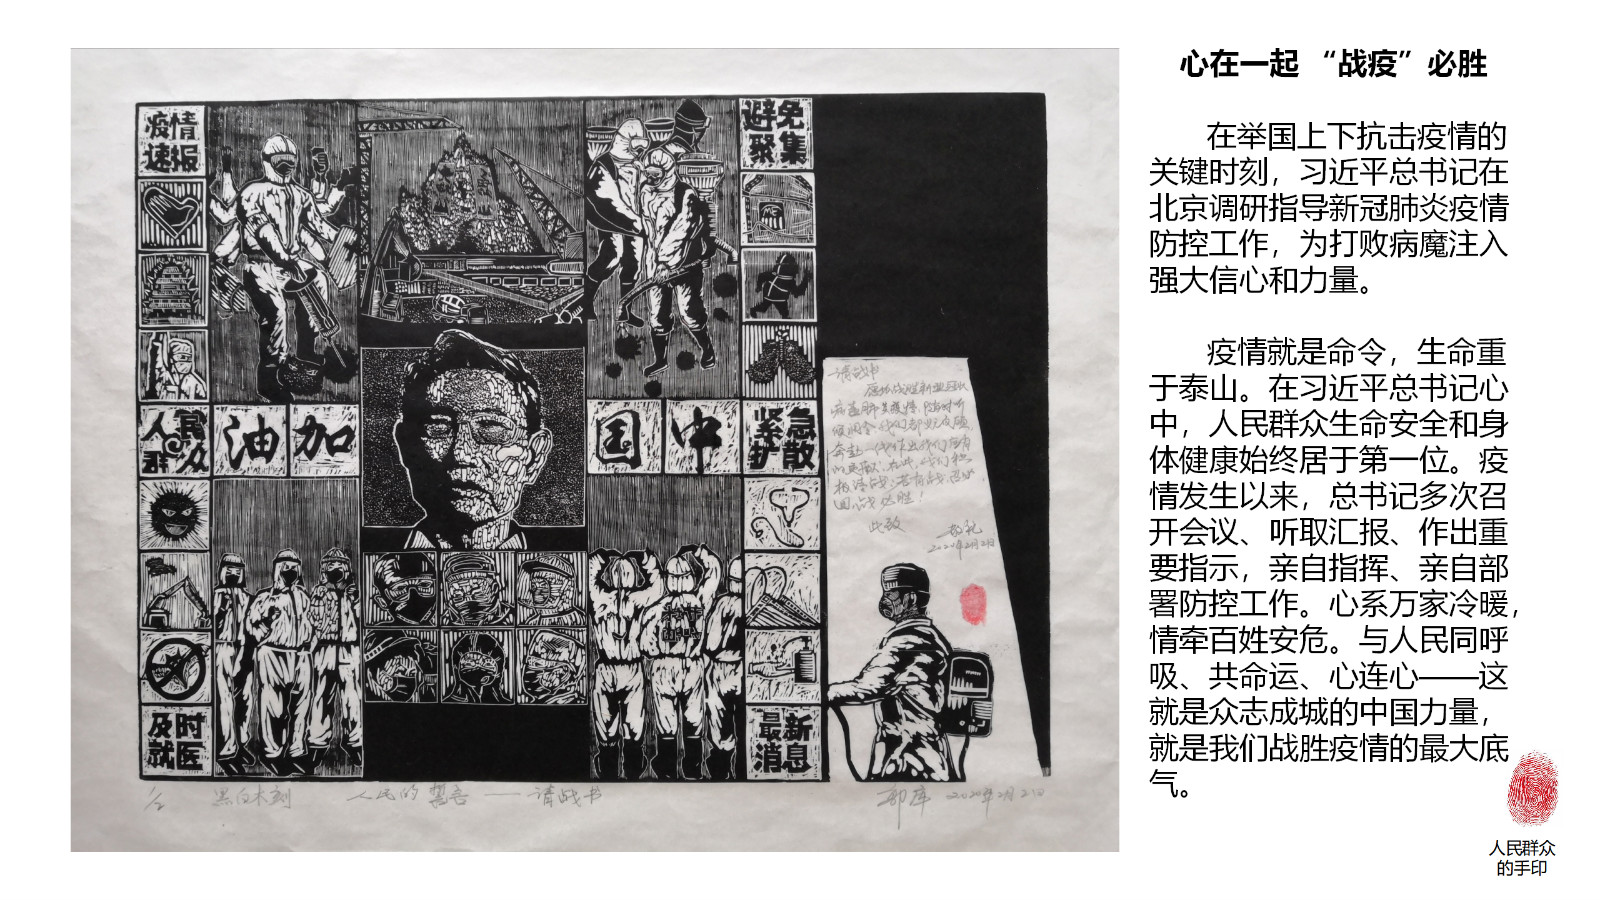 疫情
速报
避免
聚集
人民
群众
油
加
国
中
紧急
扩散
及时
就医
最新
消息
请战书
此致
敬礼
2020年2月21日
1/2 黑白木刻 人民的誓言——请战书 2020年2月21日
心在一起 “战疫”必胜
在举国上下抗击疫情的
关键时刻，习近平总书记在
北京调研指导新冠肺炎疫情
防控工作，为打败病魔注入
强大信心和力量。
疫情就是命令，生命重
于泰山。在习近平总书记心
中，人民群众生命安全和身
体健康始终居于第一位。疫
情发生以来，总书记多次召
开会议、听取汇报、作出重
要指示，亲自指挥、亲自部
署防控工作。心系万家冷暖，
情牵百姓安危。与人民同呼
吸、共命运、心连心——这
就是众志成城的中国力量，
就是我们战胜疫情的最大底
气。
人民群众
的手印